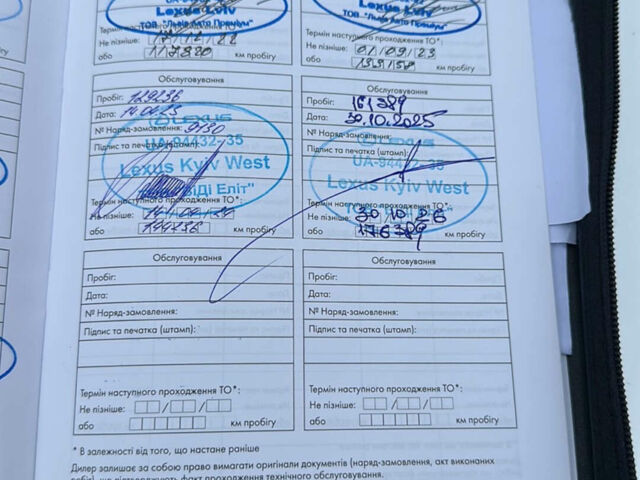 Lexus Lviv
ТОВ "Львів Авто Преміум"
Термін наступного проходження ТО*:
Не пізніше: 17/12/22
або 117880 км пробігу
Lexus Kyiv
ТОВ "Львів Авто Преміум"
Термін наступного проходження ТО*:
Не пізніше: 01/09/23
або км пробігу
Обслуговування
Пробіг: 129236
Дата:
№ Наряд-замовлення: 9130
Підпис та печатка (штамп):
LEXUS
UA-94432-35
Lexus Kyiv West
"ВІДІ Еліт"
Термін наступного проходження ТО*:
Не пізніше:
або км пробігу
Обслуговування
Пробіг: 161389
Дата: 30.10.2025
№ Наряд-замовлення:
Підпис та печатка (штамп):
LEXUS
Lexus Kyiv West
Термін наступного проходження ТО*:
Не пізніше: 30/10/26
або 176389 км пробігу
Обслуговування
Пробіг:
Дата:
№ Наряд-замовлення:
Підпис та печатка (штамп):
Термін наступного проходження ТО*:
Не пізніше:
або км пробігу
Обслуговування
Пробіг:
Дата:
№ Наряд-замовлення:
Підпис та печатка (штамп):
Термін наступного проходження ТО*:
Не пізніше:
або км пробігу
* В залежності від того, що настане раніше
Дилер залишає за собою право вимагати оригінали документів (наряд-замовлення, акт виконаних
що підтверджують факт проходження технічного обслуговування.